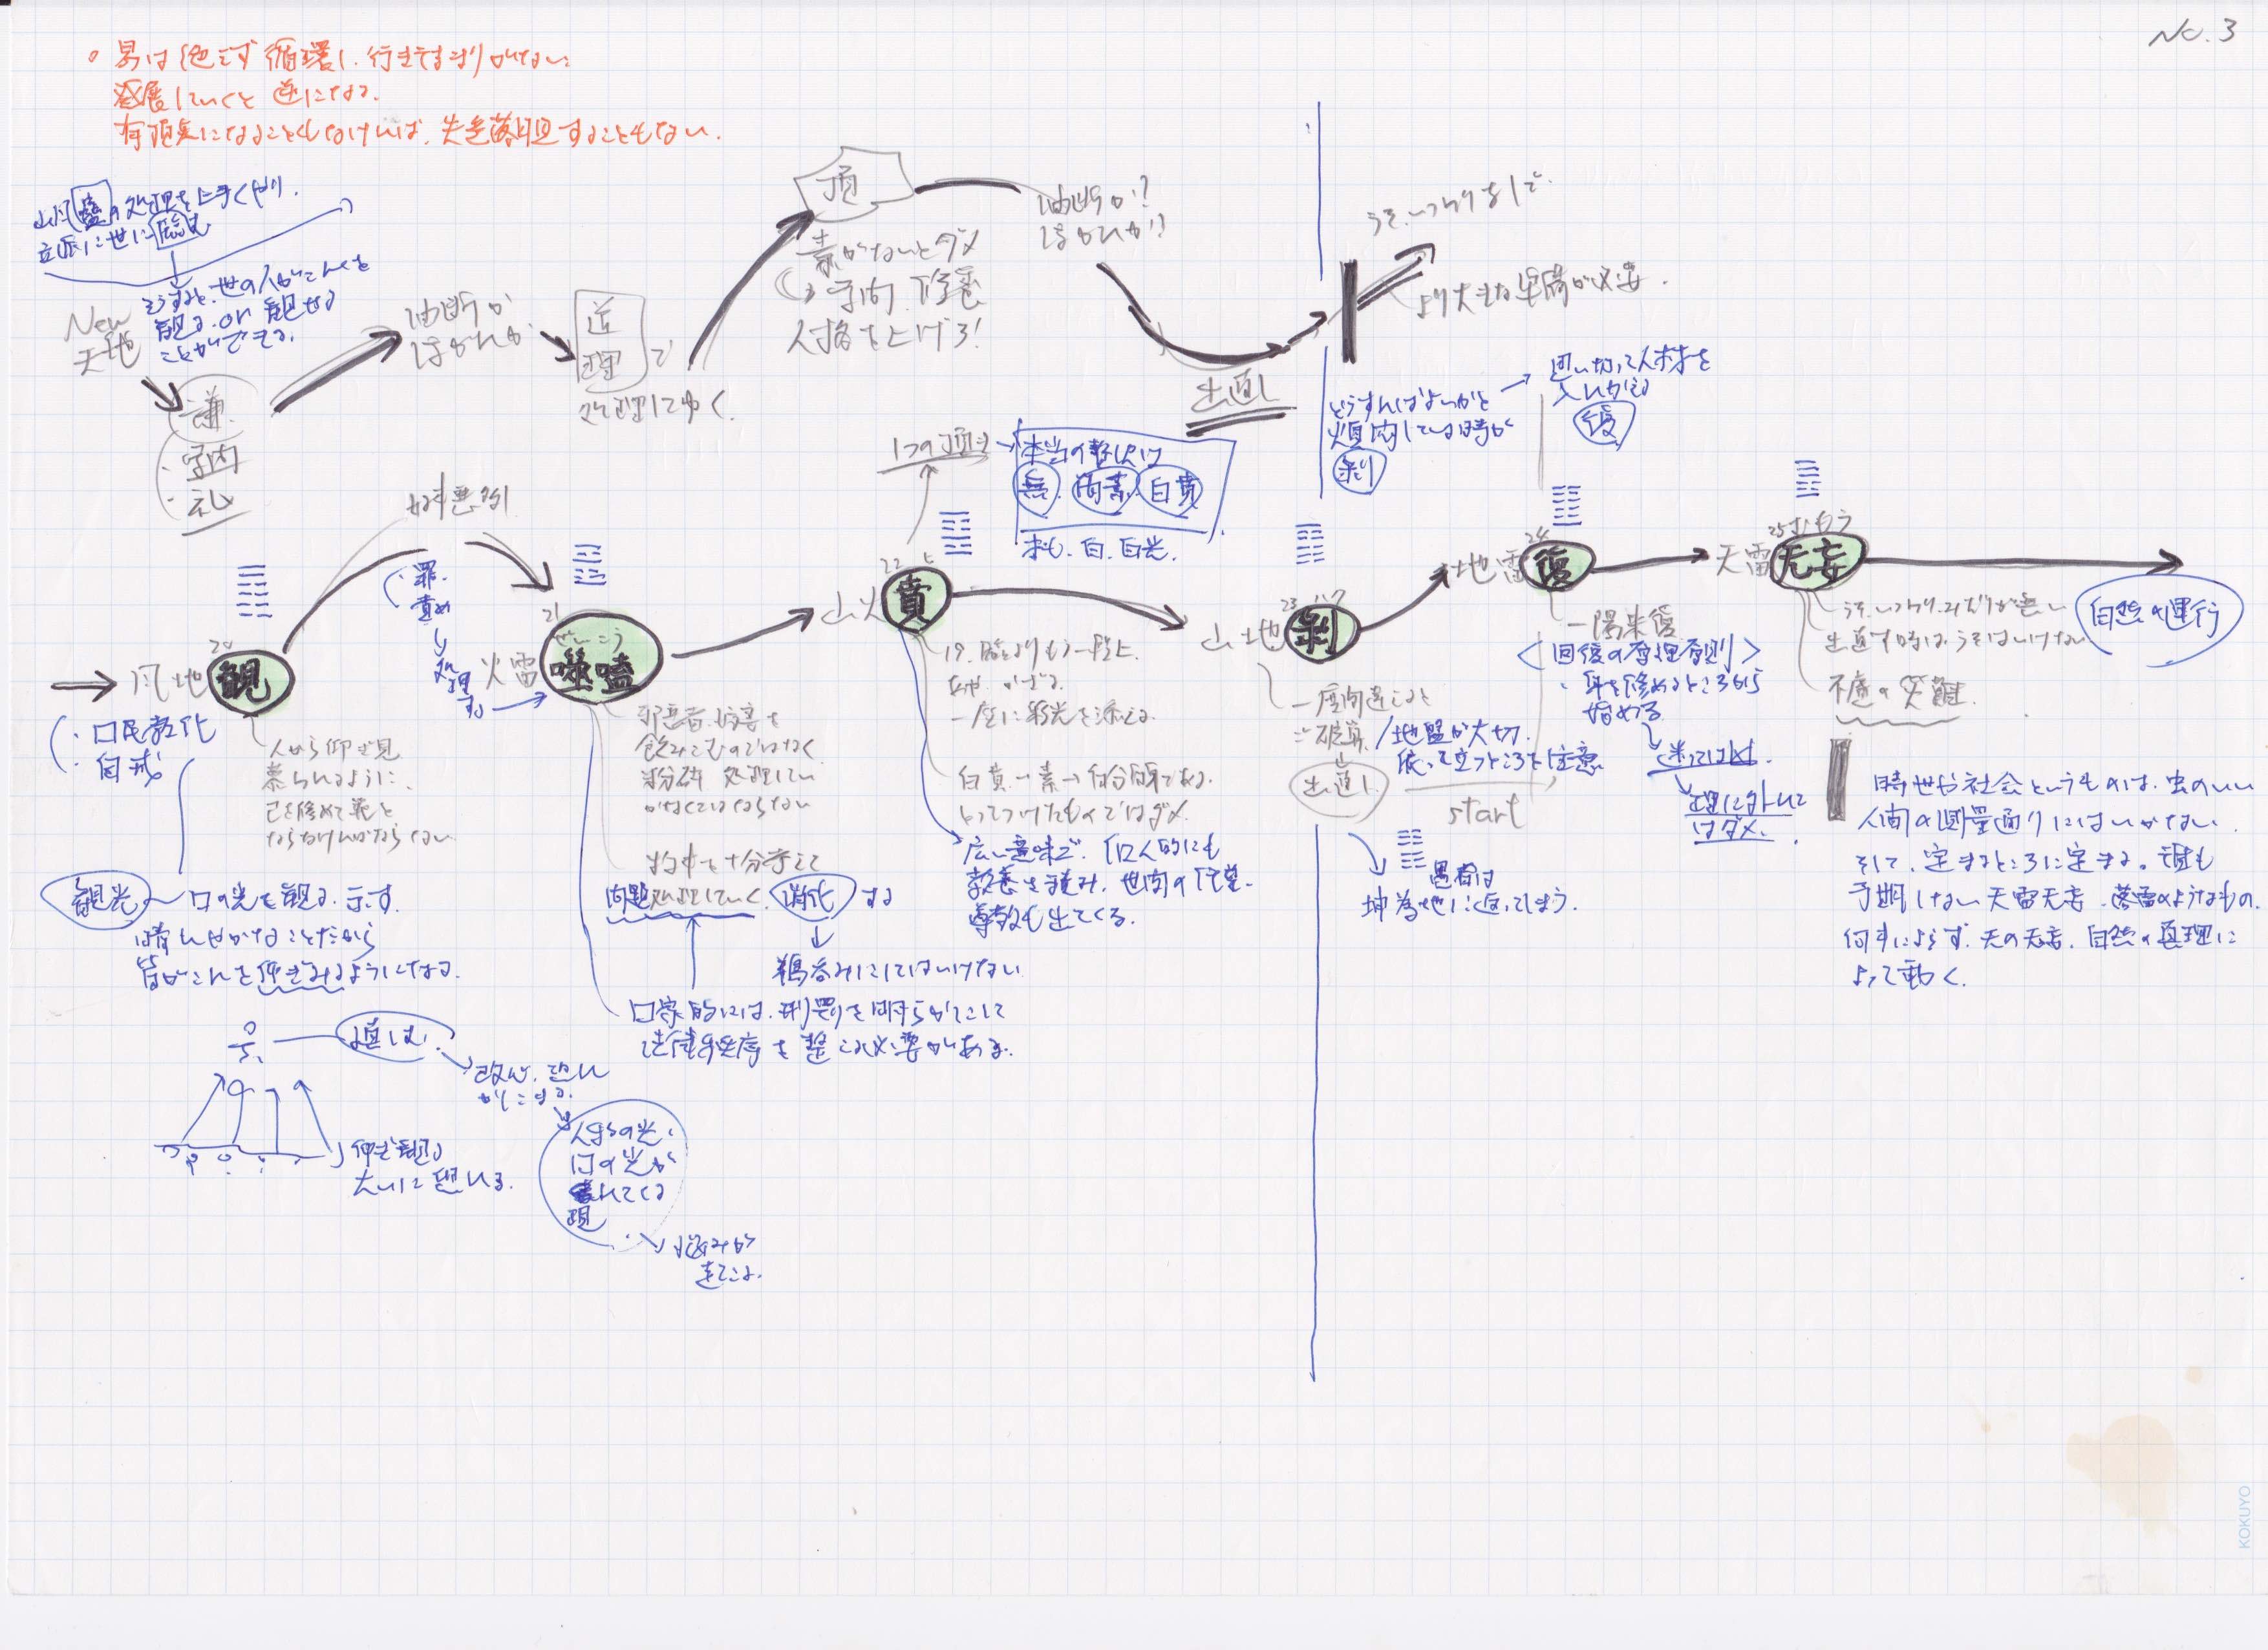 No.3
。易は必らず循環し、行きてまりがない
発展していくと逆になる.
有頂天になることもなければ、失意落胆することもない.
山風蠱の処理を上手くやり.
立派に世に臨む
そうすると、世の人がこれを
観る. or 観せる
ことができる.
New
天地
謙.
・学問
・礼
油断か
はがれか
道
理で
処理してゆく.
頂
素がないとダメ
学問. 修養
人格を上げろ!
油断か!?
はがれか!?
出直し
うそ、いつわりなしで.
より大きな準備が必要.
どうすればよいかと
煩悶している時が
剥
思い切って人材を
入れかえる
復
1つの頂き
本当の賁は
無. 簡素. 白賁
素も. 白. 白光.
好事悪例
罪.
責め
処理
する
20
風地 観
・国民教化
・自戒
人から仰ぎ見
慕られるように.
己を修めて範と
ならなければならない
観光 国の光を観る. 示す.
晴れやかなことだから
皆がこれを仰ぎみるようになる.
道は.
改心. 思い
がこする.
仰ぎ観る
大いに思いる.
人からの光.
国の光が
現れてくる
悩みが
出てくる.
21
ぜいこう
火雷 噬嗑
邪悪者. 妨害を
飲みこむのではなく
粉砕 処理してい
かなくてはならない
物事を十分考えて
問題処理していく. 消化する
鵜呑みにしてはいけない
国家的には. 刑罰を明らかにして
法律秩序を整える必要がある.
22 ひ
山火 賁
19. 臨よりもう一段上
あや. かざる.
一層に彩光を添える.
白賁→素→自分自身である.
とってつけたものではダメ.
広い意味で. 個人的にも
教養を積み. 世間の信望.
尊敬も出てくる.
23 ハク
山地 剥
一度間違えると
ご破算.
出直し
start
地盤が大切.
依って立つところを注意
愚者は
坤為地に返ってしまう.
24
地雷 復
一陽来復
<回復の原理原則>
・身を修めるところから
始める
迷ってはダメ.
理に外れて
はダメ.
25 むもう
天雷 无妄
うそ、いつわり、みだりが無い
出直す時はうそはいけない
不慮の災難.
自然の運行
時世や社会というものは、虫のいい
人間の測量通りにはいかない.
そして、定まるところに定まる。誰も
予期しない天雷无妄. 落雷のようなもの.
何事によらず. 天の无妄. 自然の真理に
よって動く.
KOKUYO